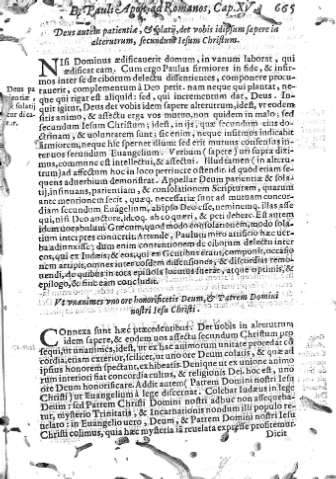 B. Pauli Apost. ad Romanos, Cap. XV. 665
Deus autem patientiæ, & solatij, det vobis idipsum sapere in
alterutrum, secundum Iesum Christum.
NIsi Dominus ædificauerit domum, in vanum laborat, qui
ædificat eam. Cum ergo Paulus firmiores in fide, & infir-
mos inter se de ciborum delectu dissentientes, componere procu-
rauerit, complementum à Deo petit. nam neque qui plantat, ne-
que qui rigat est aliquid: sed, qui incrementum dat, Deus. In-
quit igitur, Deus det vobis idem sapere alterutrum, idest, vt eodem
sitis animo, & affectu erga vos mutuo, non quidem in malo; sed
secundum Iesum Christum; idest, in ijs, quæ secundum eius do-
ctrinam, & voluntatem sunt: sic enim, neque infirmos indicabit
firmiores, neque hic spernet illum: sed erit mutuus consensus in-
ter vos secundum Euangelium. Verbum (sapere) vti supra dixi-
mus, commune est intellectui, & affectui. Illud enim (in alteru-
trum) ad affectum hoc in loco pertinere ostendit. id quod etiam se-
quens aduerbium demonstrat. Appellat Deum patientiæ & sola-
tij, insinuans, patientiam, & consolationem Scripturarum, quarum
ante mentionem fecit, quæq; necessariæ sunt ad mutuam concor-
diam secundum Euāgelium, ab ipso Deo esse, neminemq; illas asse-
qui, nisi Deo auctore, ideoq. ab eo quæri, & peti debere. Est autem
idem vocabulum Græcum, quod modo consolationem, modo sola-
tium interpres conuertit. Attende, Paulum miro artificio hæc ver-
ba addidisse; dum enim contentionem de ciborum delectu inter
eos, qui ex Iudæis; & eos, qui ex Gentibus erant, componit, occasio-
nem arripit, omnes inter eosdem dissensiones, & discordias remo-
uendi, de quibus in tota epistola locutus fuerat, atque optimis, &
epilogo, & fine eam concludit.
Vt vnanimes vno ore honorificetis Deum, & Patrem Domini
nostri Iesu Christi.
COnnexa sunt hæc præcedentibus: Det vobis in alterutrum
idem sapere, & eodem vos affectu secundum Christum pro-
sequi, vt vnanimes, idest, vt ex hac animorum vnitate procedat cō
cordia, etiam exterior, scilicet, vt vno ore Deum colatis, & quæ ad
ipsius honorem spectant, exhibeatis. Denique vt ex vnione animo
rum interiori fiat concordia cultus, & religionis Dei. hoc est, vno
ore Deum honorificare. Addit autem (Patrem Domini nostri Iesu
Christi) vt Euangelium à lege discernat. Colebat Iudæus in lege
Deum; sed Patrem Domini nostri adhuc non assequeba-
tur, mysterio Trinitatis, & Incarnationis nondum illi populo re-
uelato: in Euangelio vero, Deum, & Patrem Domini nostri Iesu
Christi colimus, quia hæc mysteria iā reuelata expresse profitemur.
Dicit